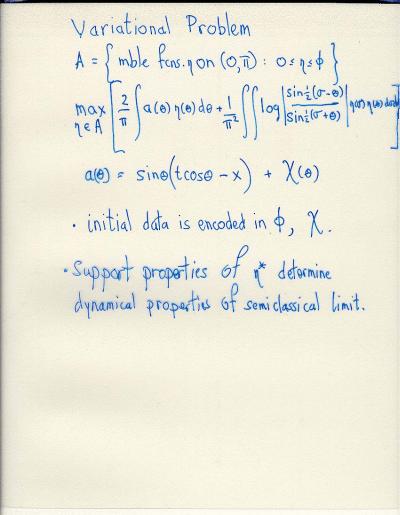 Variational Problem
A = { mble fcns. η on (0,π) : 0 ≤ η ≤ φ }
max η∈A [ 2/π ∫ a(θ) η(θ) dθ + 1/π² ∫∫ log | sin ½(σ-θ) / sin ½(σ+θ) | η(σ) η(θ) dσdθ ]
a(θ) = sinθ(tcosθ - x) + χ(θ)
· initial data is encoded in φ, χ.
· Support properties of η* determine
dynamical properties of semiclassical limit.